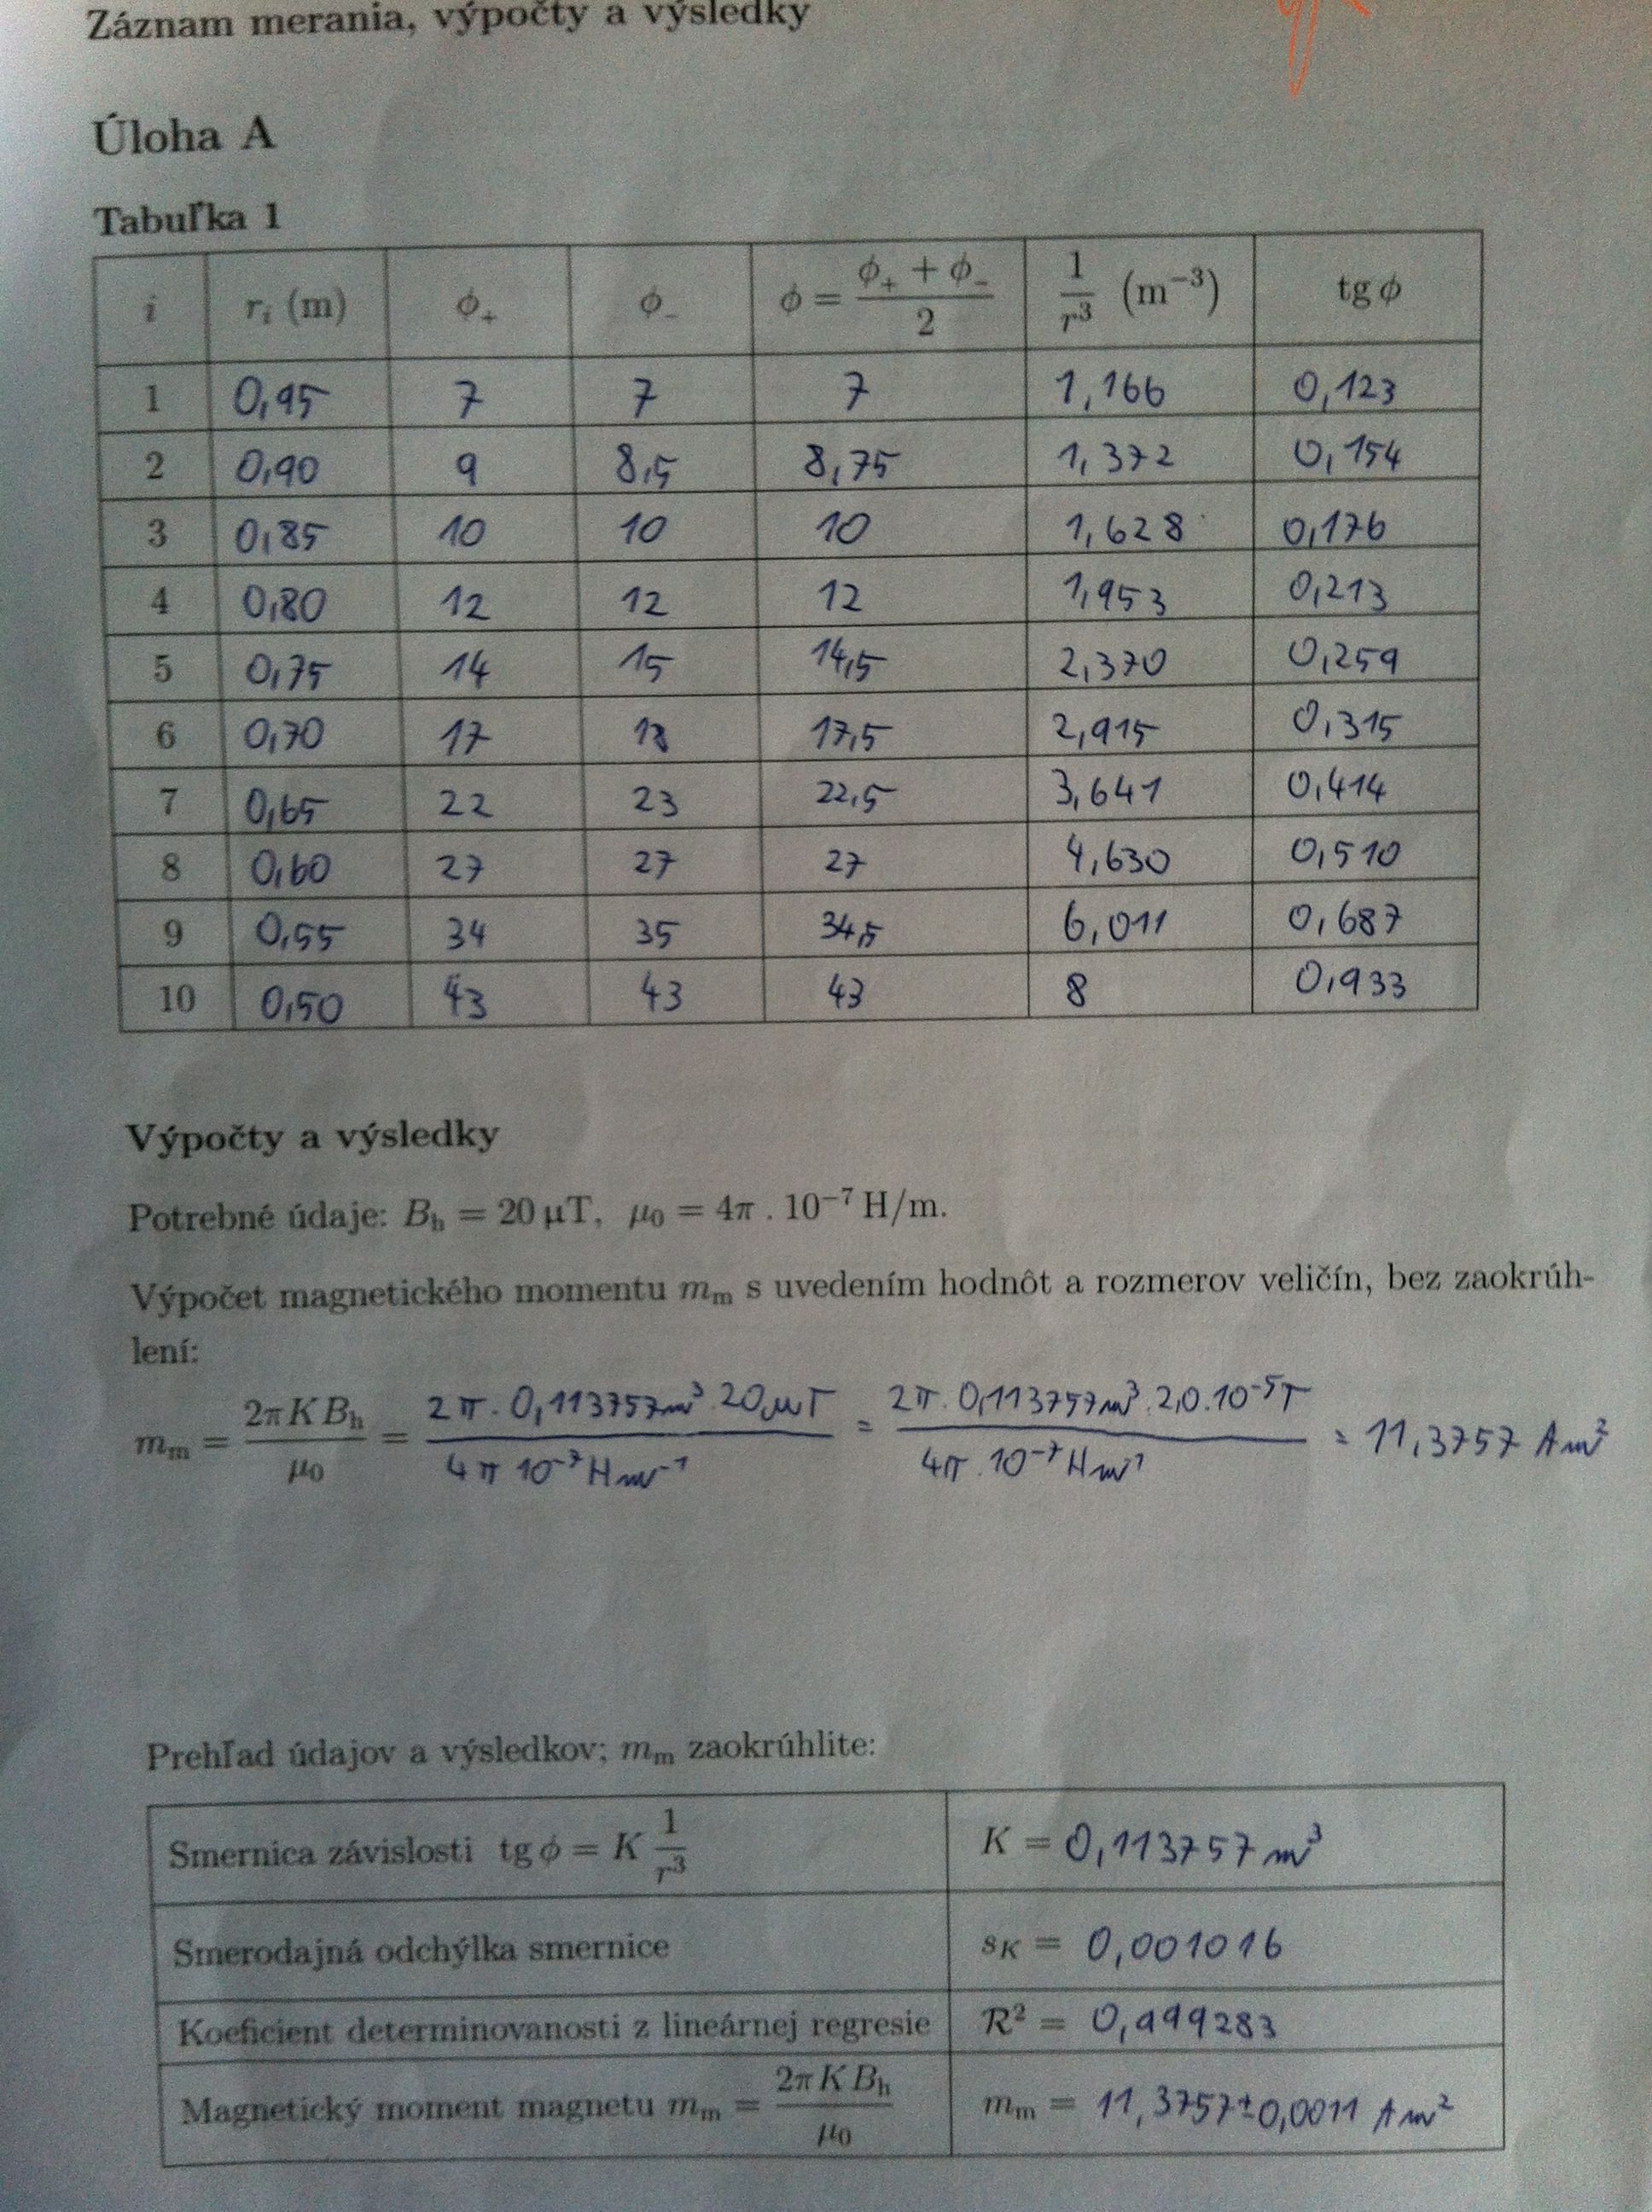 Záznam merania, výpočty a výsledky
Úloha A
Tabuľka 1
i r_i (m) ϕ₊ ϕ₋ ϕ = (ϕ₊ + ϕ₋)/2 1/r³ (m⁻³) tg ϕ
1 0,95 7 7 7 1,166 0,123
2 0,90 9 8,5 8,75 1,372 0,154
3 0,85 10 10 10 1,628 0,176
4 0,80 12 12 12 1,953 0,213
5 0,75 14 15 14,5 2,370 0,259
6 0,70 17 18 17,5 2,915 0,315
7 0,65 22 23 22,5 3,641 0,414
8 0,60 27 27 27 4,630 0,510
9 0,55 34 35 34,5 6,011 0,687
10 0,50 43 43 43 8 0,933
Výpočty a výsledky
Potrebné údaje: B_h = 20 μT, μ₀ = 4π . 10⁻⁷ H/m.
Výpočet magnetického momentu m_m s uvedením hodnôt a rozmerov veličín, bez zaokrúh-
lení:
m_m = 2πK B_h / μ₀ = 2π · 0,113757m³ · 20μT / 4π 10⁻⁷ Hm⁻¹ = 2π · 0,113757m³ · 2,0 · 10⁻⁵T / 4π · 10⁻⁷ Hm⁻¹ = 11,3757 Am²
Prehľad údajov a výsledkov; m_m zaokrúhlite:
Smernica závislosti tg ϕ = K 1/r³ K = 0,113757 m³
Smerodajná odchýlka smernice s_K = 0,001016
Koeficient determinovanosti z lineárnej regresie R² = 0,999283
Magnetický moment magnetu m_m = 2πK B_h / μ₀ m_m = 11,3757±0,0011 Am²